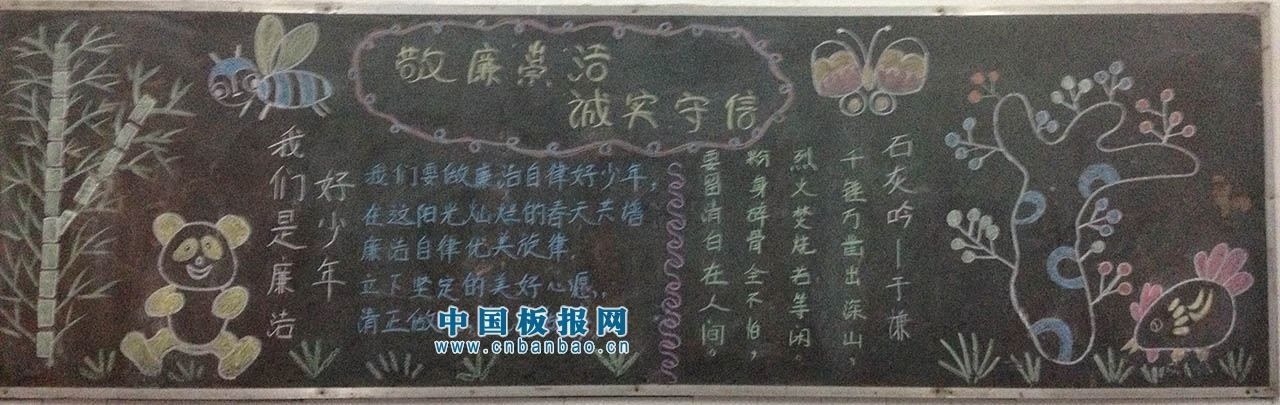 敬廉崇洁
诚实守信
我们是廉洁
好少年
我们要做廉洁自律好少年，
在这阳光灿烂的春天共播
廉洁自律优美旋律，
立下坚定的美好心愿，
清正做
石灰吟—于谦
千锤万凿出深山，
烈火焚烧若等闲。
粉身碎骨全不怕，
要留清白在人间。
中国板报网
www.cnbanbao.cn